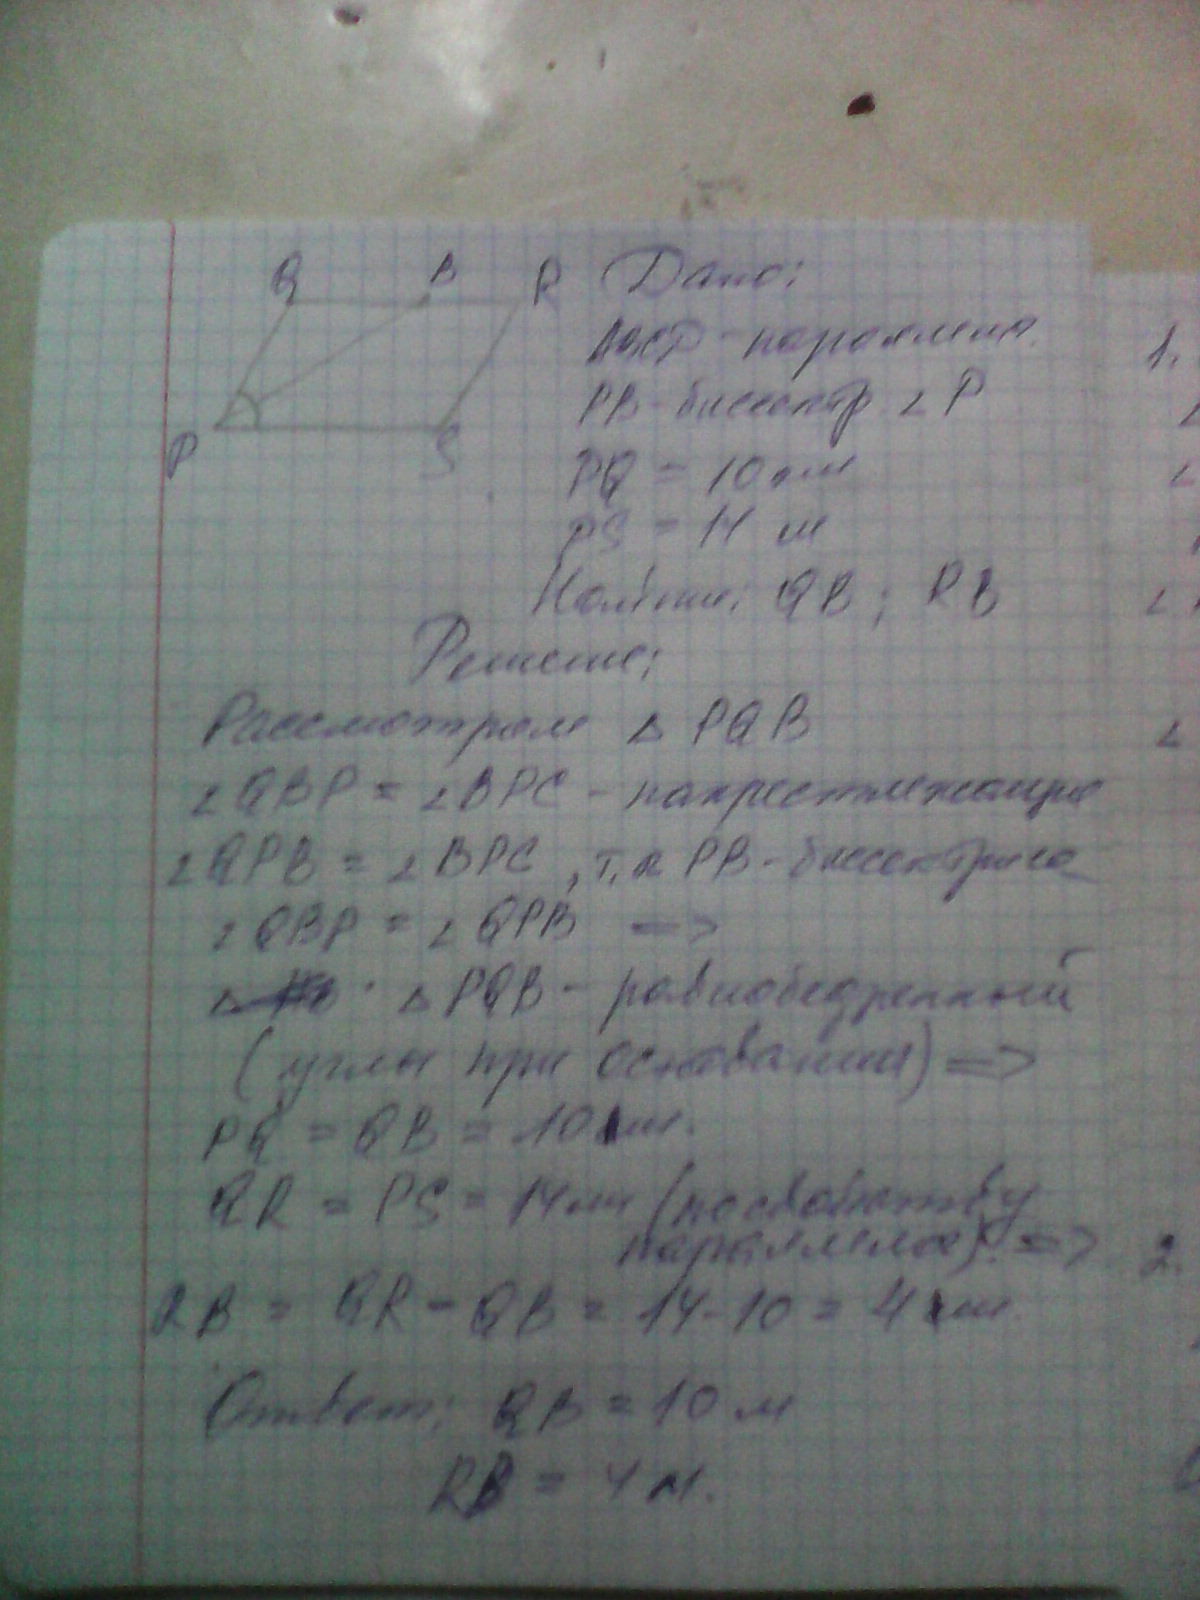 Q B R
P S
Дано:
ABCD - параллело.
PB - биссектр ∠P
PQ = 10 см
PS = 14 м
QB; RB
Решение:
Рассмотрем △ PQB
∠QBP = ∠BPC - накрестлежащие
∠QPB = ∠BPC, т.к PB - биссектриса
∠QBP = ∠QPB =>
△ PQB - равнобедренный
(углы при основании) =>
PQ = QB = 10 м.
QR = PS = 14 м (по свойству
параллелог). =>
RB = QR - QB = 14 - 10 = 4 м.
Ответ: QB = 10 м
RB = 4 м.
1.
∠
∠
∠
∠
2.